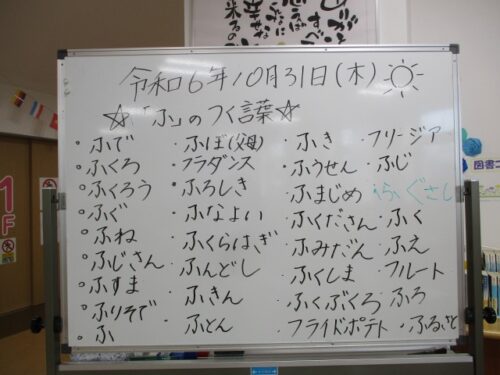 令和6年10月31日(木)
☆「ふ」のつく言葉☆
・ふで
・ふくろ
・ふくろう
・ふぐ
・ふね
・ふじさん
・ふすま
・ふりそで
・ふ
・ふぼ(父母)
・フラダンス
・ふろしき
・ふなよい
・ふくらはぎ
・ふんどし
・ふきん
・ふとん
・ふき
・ふうせん
・ふまじめ
・ふくださん
・ふみだん
・ふくしま
・ふくぶくろ
・フライドポテト
・フリージア
・ふじ
・ふぐさし
・ふく
・ふえ
・フルート
・ふろ
・ふるさと
1F
図書コ